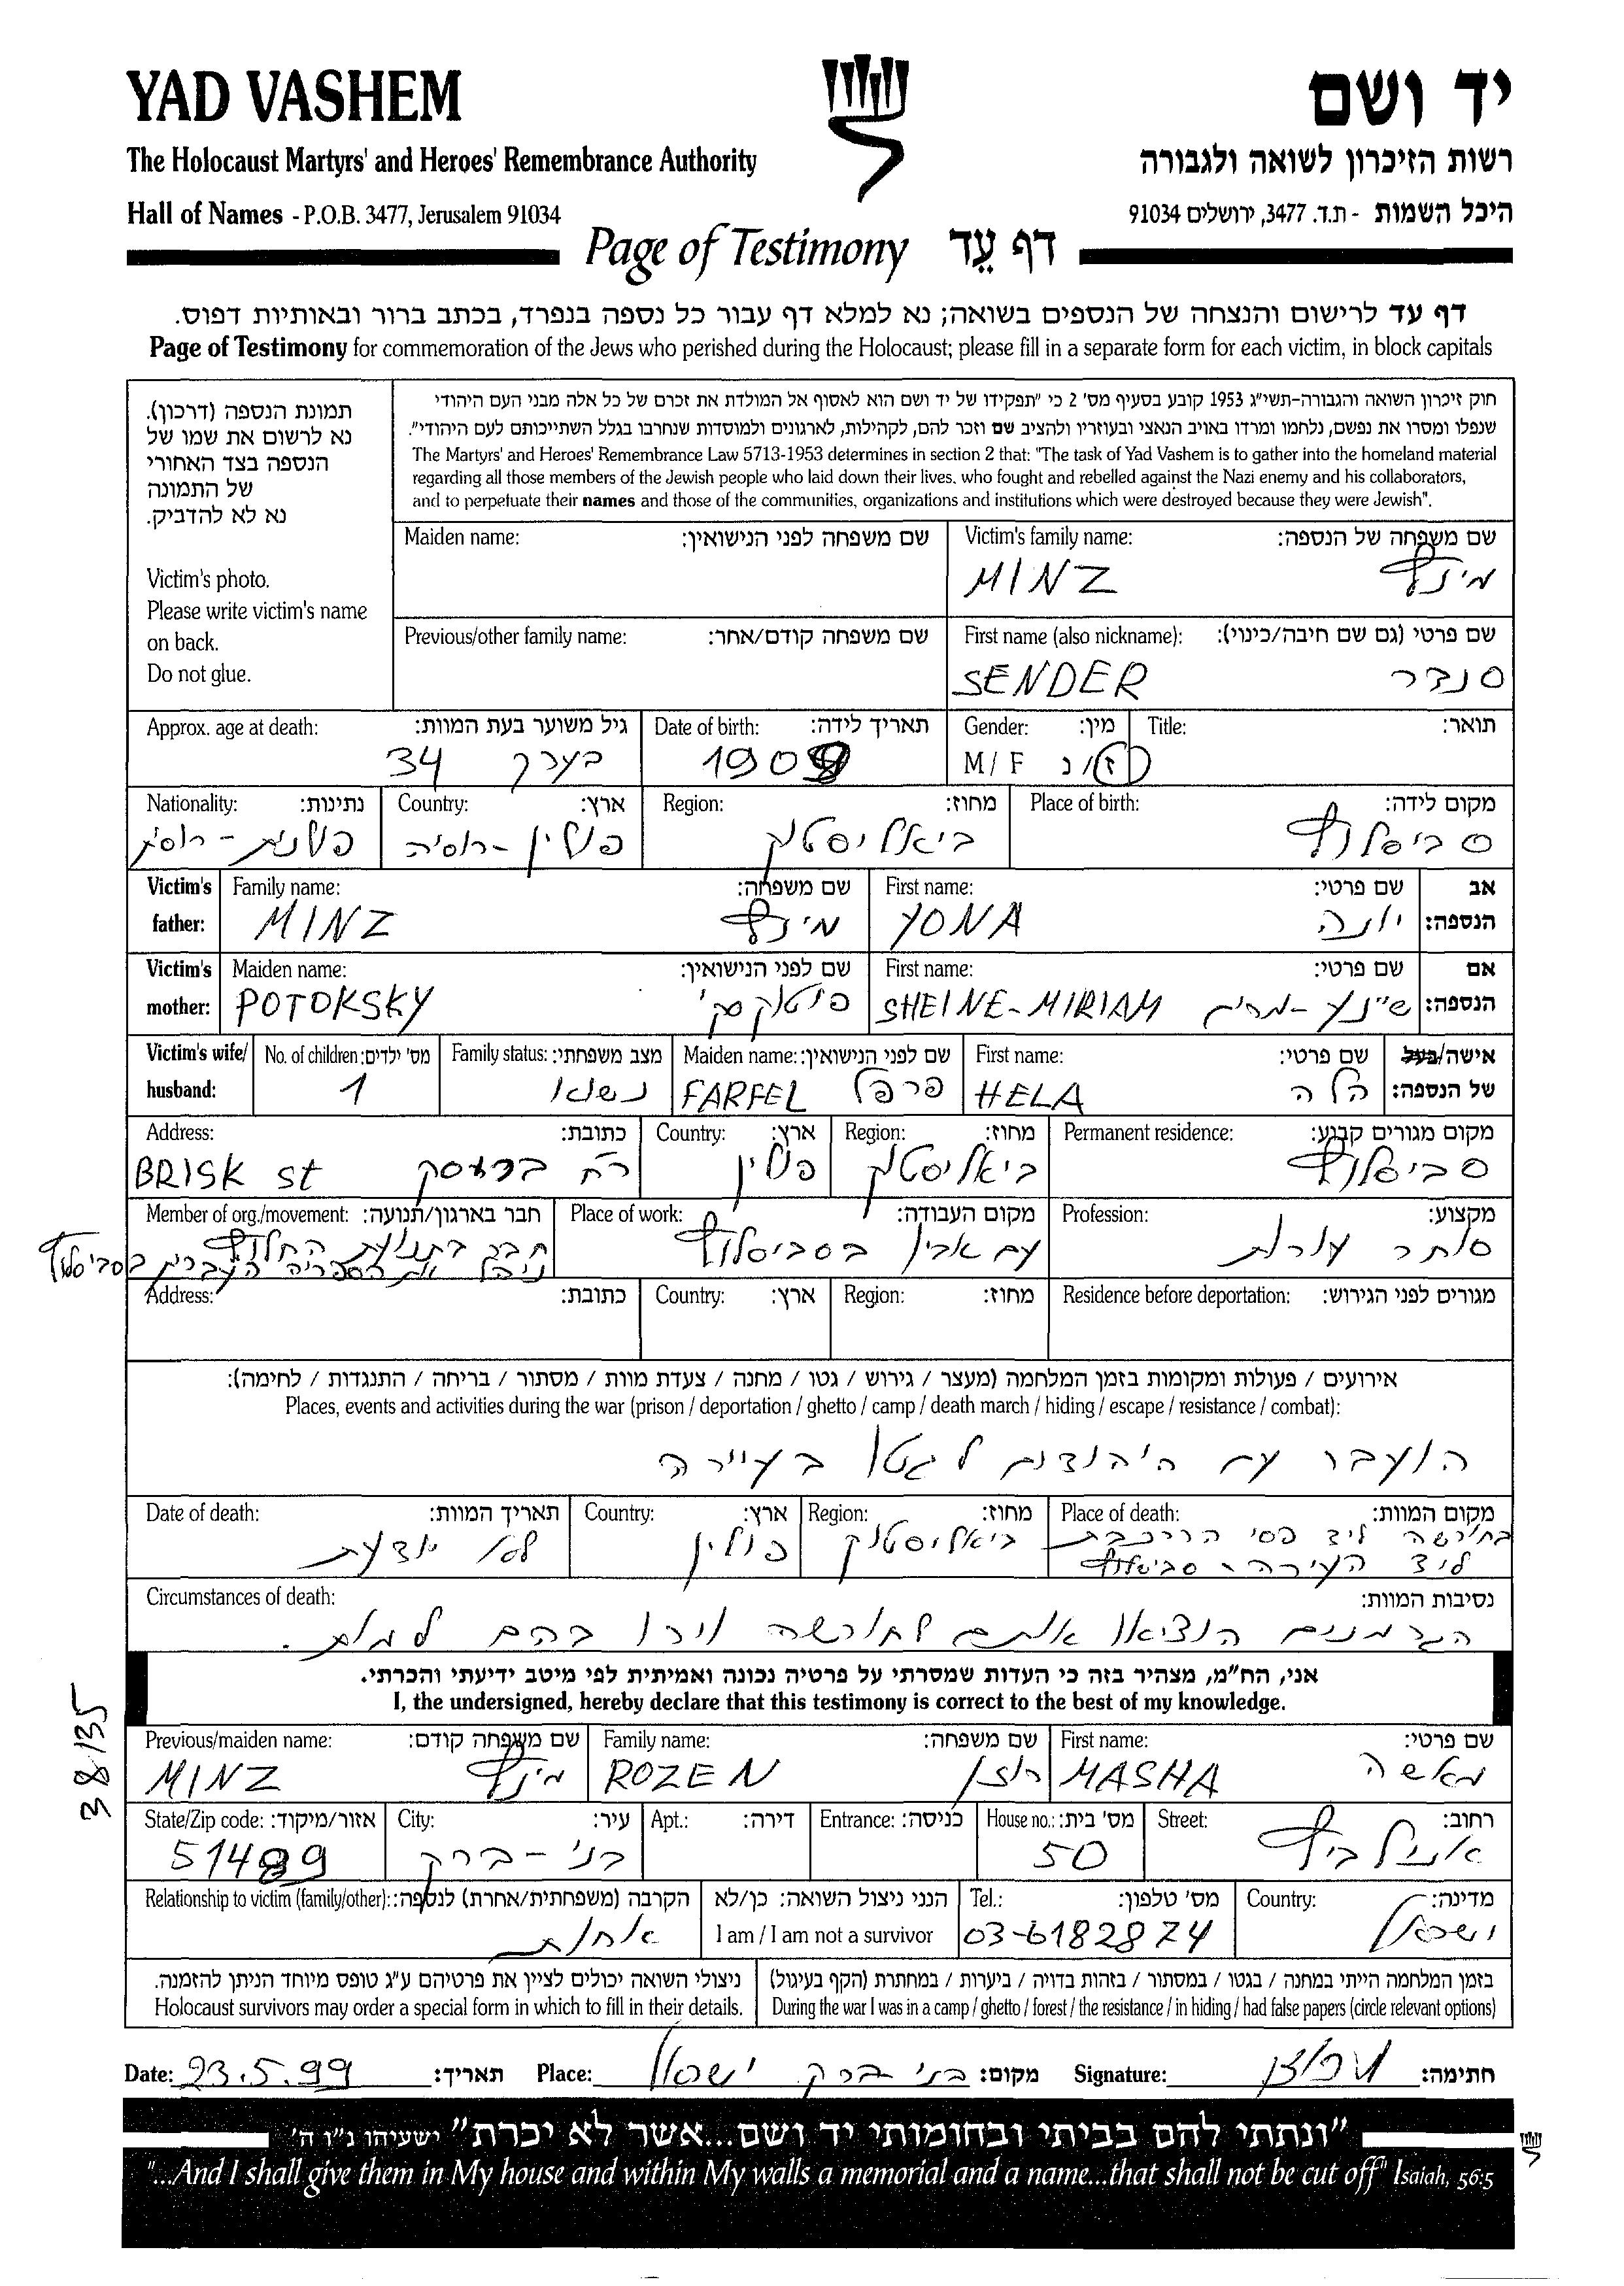 YAD VASHEM
יד ושם
The Holocaust Martyrs' and Heroes' Remembrance Authority
רשות הזיכרון לשואה ולגבורה
Hall of Names - P.O.B. 3477, Jerusalem 91034
היכל השמות - ת.ד. 3477, ירושלים 91034
Page of Testimony דף עֵד
דף עד לרישום והנצחה של הנספים בשואה; נא למלא דף עבור כל נספה בנפרד, בכתב ברור ובאותיות דפוס.
Page of Testimony for commemoration of the Jews who perished during the Holocaust; please fill in a separate form for each victim, in block capitals
תמונת הנספה (דרכון).
נא לרשום את שמו של
הנספה בצד האחורי
של התמונה
נא לא להדביק.
Victim's photo.
Please write victim's name
on back.
Do not glue.
חוק זיכרון השואה והגבורה-תשי"ג 1953 קובע בסעיף מס' 2 כי "תפקידו של יד ושם הוא לאסוף אל המולדת את זכרם של כל אלה מבני העם היהודי
שנפלו ומסרו את נפשם, נלחמו ומרדו באויב הנאצי ובעוזריו ולהציב שם וזכר להם, לקהילות, לארגונים ולמוסדות שנחרבו בגלל השתייכותם לעם היהודי".
The Martyrs' and Heroes' Remembrance Law 5713-1953 determines in section 2 that: "The task of Yad Vashem is to gather into the homeland material
regarding all those members of the Jewish people who laid down their lives, who fought and rebelled against the Nazi enemy and his collaborators,
and to perpetuate their names and those of the communities, organizations and institutions which were destroyed because they were Jewish".
Maiden name: שם משפחה לפני הנישואין:
Victim's family name: שם משפחה של הנספה:
MINZ מינץ
Previous/other family name: שם משפחה קודם/אחר:
First name (also nickname): שם פרטי (גם שם חיבה/כינוי):
SENDER סנדר
Approx. age at death: גיל משוער בעת המוות:
בערך 34
Date of birth: תאריך לידה:
1908
Gender: מין:
M / F ז/נ
Title: תואר:
Nationality: נתינות:
פולנית - רוסית
Country: ארץ:
פולין - רוסיה
Region: מחוז:
ביאליסטוק
Place of birth: מקום לידה:
סביסלוץ
Victim's father: אב הנספה:
Family name: שם משפחה:
MINZ מינץ
First name: שם פרטי:
YONA יונה
Victim's mother: אם הנספה:
Maiden name: שם לפני הנישואין:
POTOKSKY פוטוקסקי
First name: שם פרטי:
SHEINE-MIRIAM שיינע-מרים
Victim's wife/husband: אישה/בעל של הנספה:
No. of children: מס' ילדים:
1
Family status: מצב משפחתי:
נשוא
Maiden name: שם לפני הנישואין:
FARFEL פרפל
First name: שם פרטי:
HELA הלה
Address: כתובת:
BRISK st רח' בריסק
Country: ארץ:
פולין
Region: מחוז:
ביאליסטוק
Permanent residence: מקום מגורים קבוע:
סביסלוץ
Member of org./movement: חבר בארגון/תנועה:
חבר בתנועת החלוץ
ניהל את הספריה העברית בסביסלוץ
Place of work: מקום העבודה:
עם אביו בסביסלוץ
Profession: מקצוע:
סוחר עורות
Address: כתובת:
Country: ארץ:
Region: מחוז:
Residence before deportation: מגורים לפני הגירוש:
אירועים / פעולות ומקומות בזמן המלחמה (מעצר / גירוש / גטו / מחנה / צעדת מוות / מסתור / בריחה / התנגדות / לחימה):
Places, events and activities during the war (prison / deportation / ghetto / camp / death march / hiding / escape / resistance / combat):
הועבר עם היהודים לגטו בעיירה
Date of death: תאריך המוות:
לא יודעת
Country: ארץ:
פולין
Region: מחוז:
ביאליסטוק
Place of death: מקום המוות:
בחורשה ליד פסי הרכבת
ליד העירה - סביסלוץ
Circumstances of death: נסיבות המוות:
הגרמנים הוציאו אותם לחורשה וירו בהם למות.
אני, הח"מ, מצהיר בזה כי העדות שמסרתי על פרטיה נכונה ואמיתית לפי מיטב ידיעתי והכרתי.
I, the undersigned, hereby declare that this testimony is correct to the best of my knowledge.
38135
Previous/maiden name: שם משפחה קודם:
MINZ מינץ
Family name: שם משפחה:
ROZEN רוזן
First name: שם פרטי:
MASHA מאשה
State/Zip code: אזור/מיקוד:
51489
City: עיר:
בני-ברק
Apt.: דירה:
Entrance: כניסה:
House no.: מס' בית:
50
Street: רחוב:
אנילביץ
Relationship to victim (family/other): הקרבה (משפחתית/אחרת) לנספה:
אחות
הנני ניצול השואה: כן/לא
I am / I am not a survivor
Tel.: מס' טלפון:
03-6182874
Country: מדינה:
ישראל
ניצולי השואה יכולים לציין את פרטיהם ע"ג טופס מיוחד הניתן להזמנה.
Holocaust survivors may order a special form in which to fill in their details.
בזמן המלחמה הייתי במחנה / בגטו / במסתור / בזהות בדויה / ביערות / במחתרת (הקף בעיגול)
During the war I was in a camp / ghetto / forest / the resistance / in hiding / had false papers (circle relevant options)
Date: 23.5.99 תאריך:
Place: בני ברק ישראל מקום:
Signature: חתימה:
"ונתתי להם בביתי ובחומותי יד ושם...אשר לא יכרת" ישעיהו נ"ו ה'
"...And I shall give them in My house and within My walls a memorial and a name...that shall not be cut off" Isaiah, 56:5